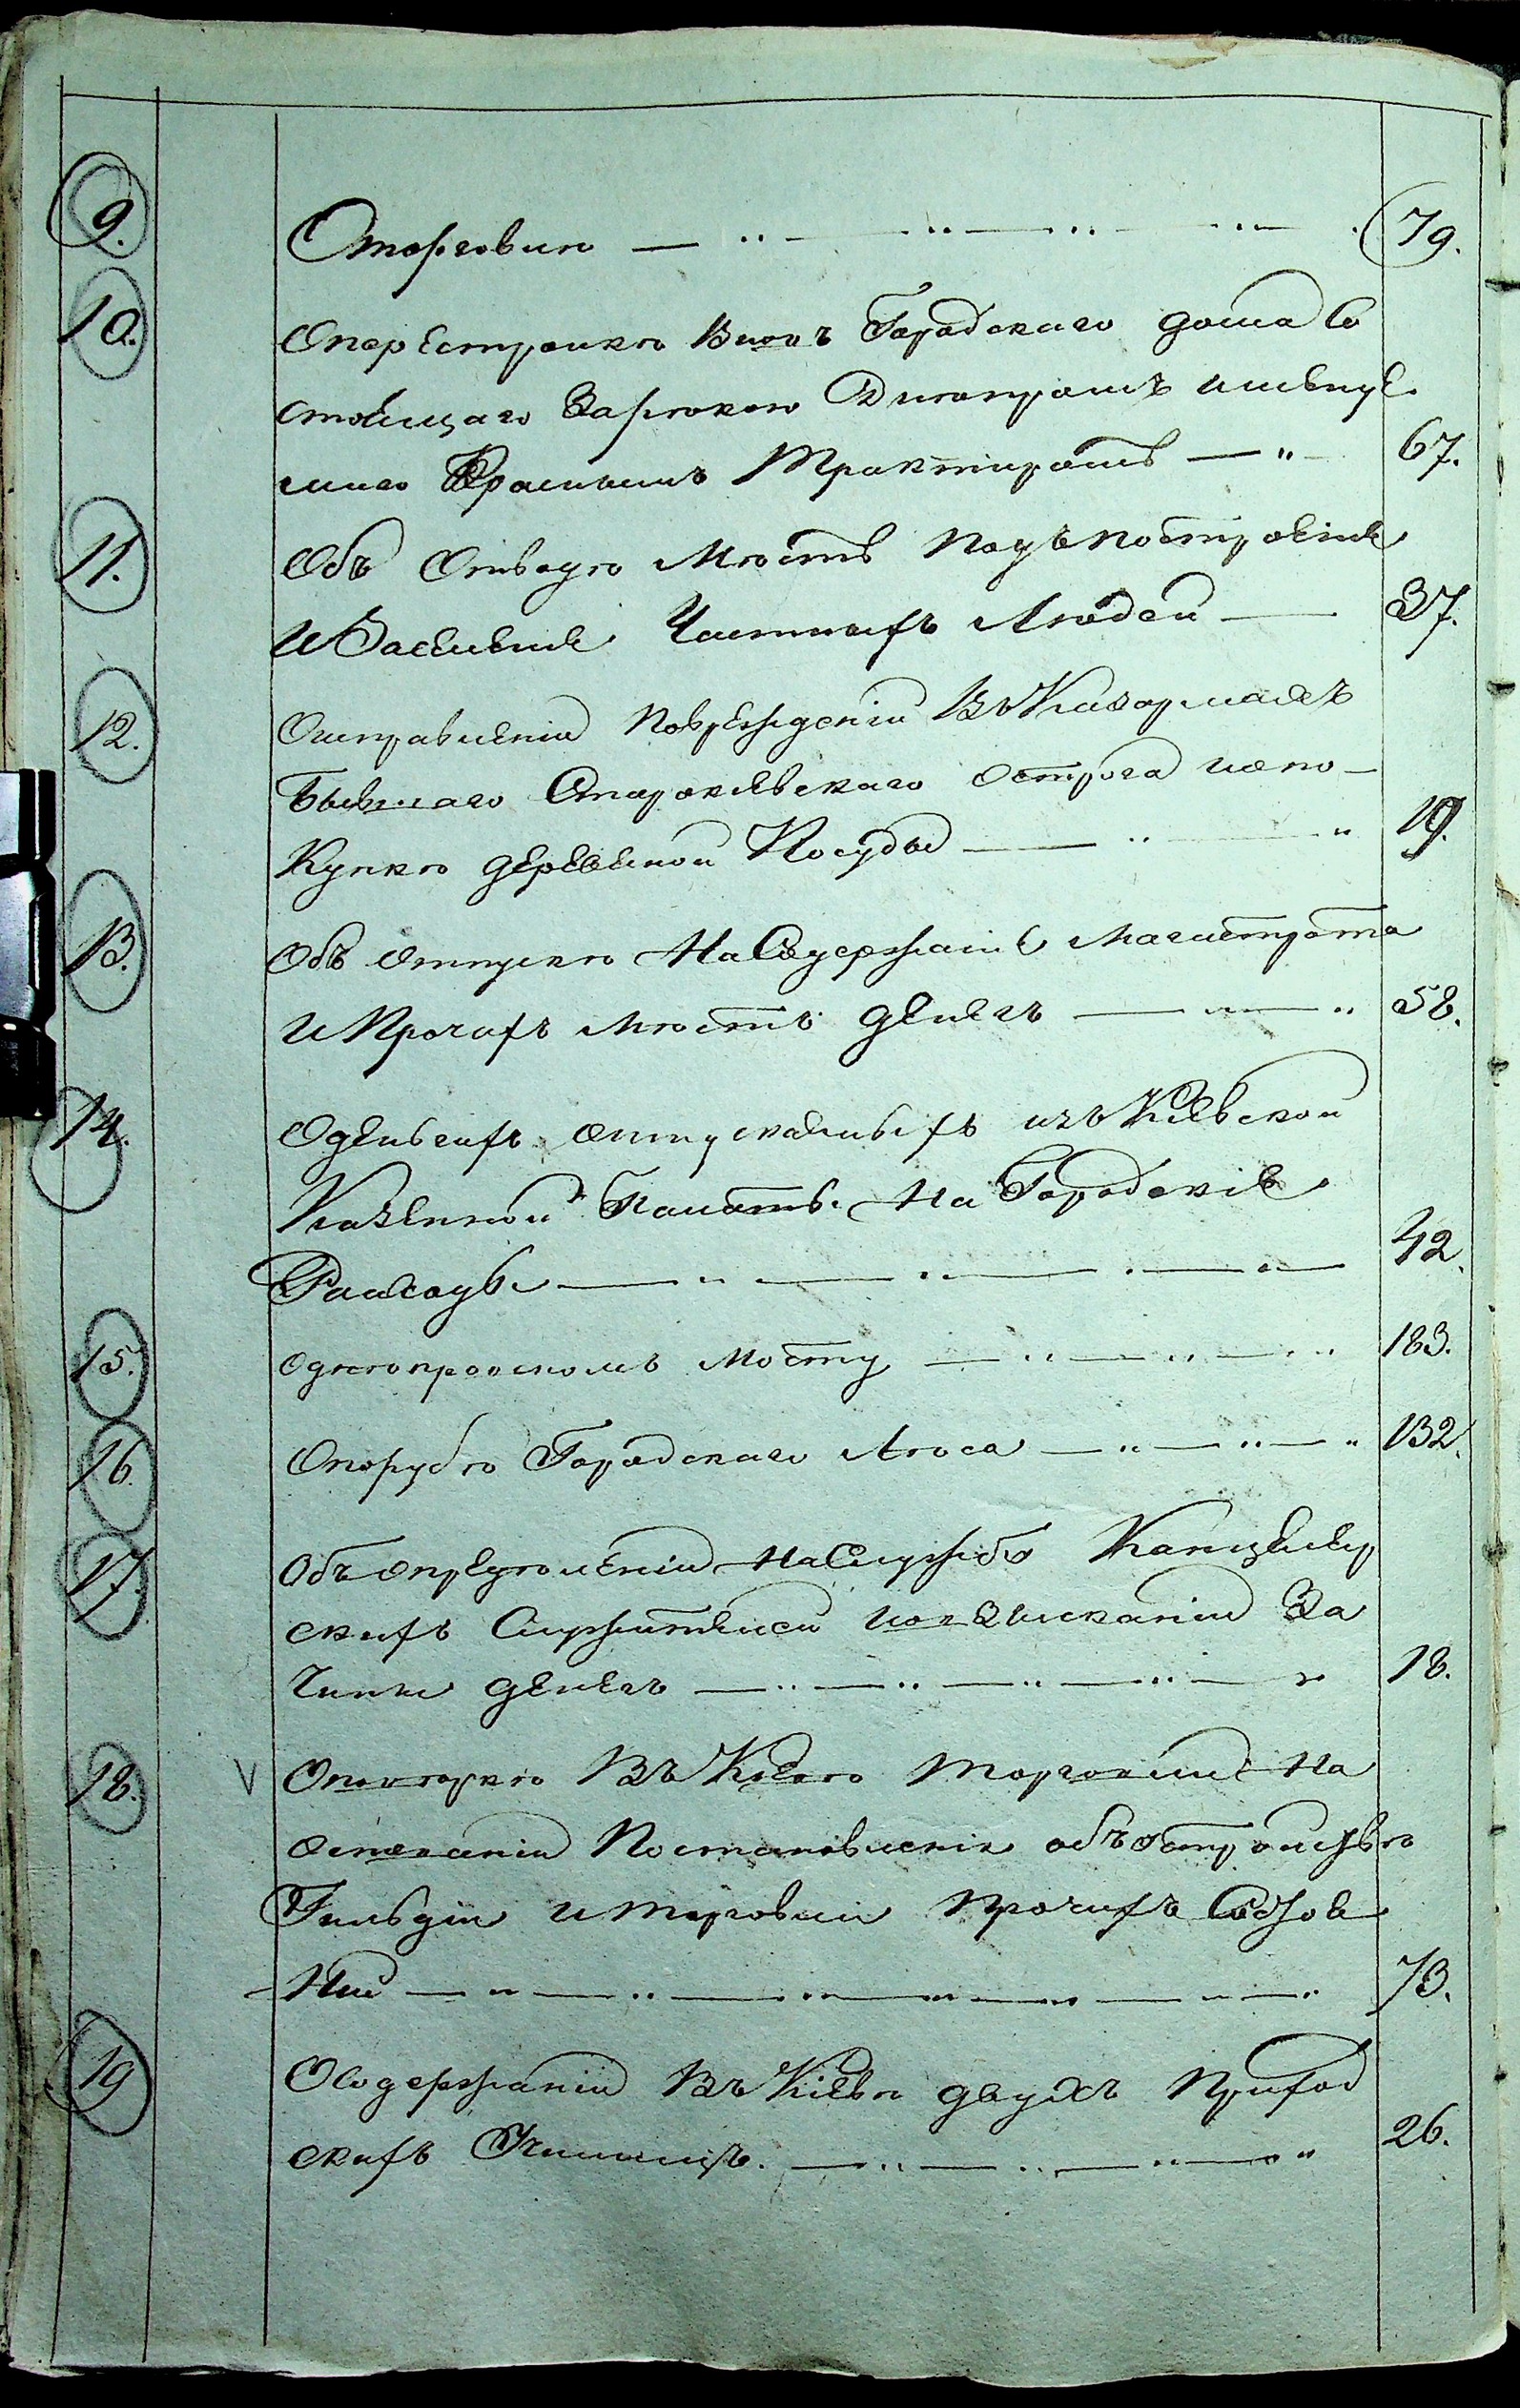 9. Оторговлѣ 79.
10. Оперестройкѣ Вновъ Городскаго дома Со
стоящаго Зарѣкою Днепромъ именуе
маго Краснымъ Трактиромъ 67.
11. Объ Отводѣ Мѣстъ Подъ построеніе
иЗаселеніе Частныхъ Людей 37.
12. Оисправленіи Поврежденій ВъКазармахъ
бывшаго Старокіевскаго Острога ипо-
Купкѣ деревяной Посуды 19.
13. Объ отпускѣ НаСодержаніе Магистрата
иПрочихъ мѣстъ денегъ 58.
14. Оденьгахъ отпускаемыхъ изъ Кіевской
Казенной Палаты На Городскіе
Расходы 42.
15. Однепровскомъ Мосту 183.
16. Опорубѣ Городскаго Лѣса 132.
17. Объ опредѣленіи НаСлужбу Канцеляр
скихъ Служителей иовзысканіи За
Чины денегъ 18.
18. V Оповѣркѣ Въ Кіевѣ Торговли На
основаніи Постановленія объ устройствѣ
Гильдіи иторговли Прочихъ Состоя
-ній 73.
19 Осодержаніи Въ Кіевѣ двухъ Приход
скихъ Училищъ. 26.